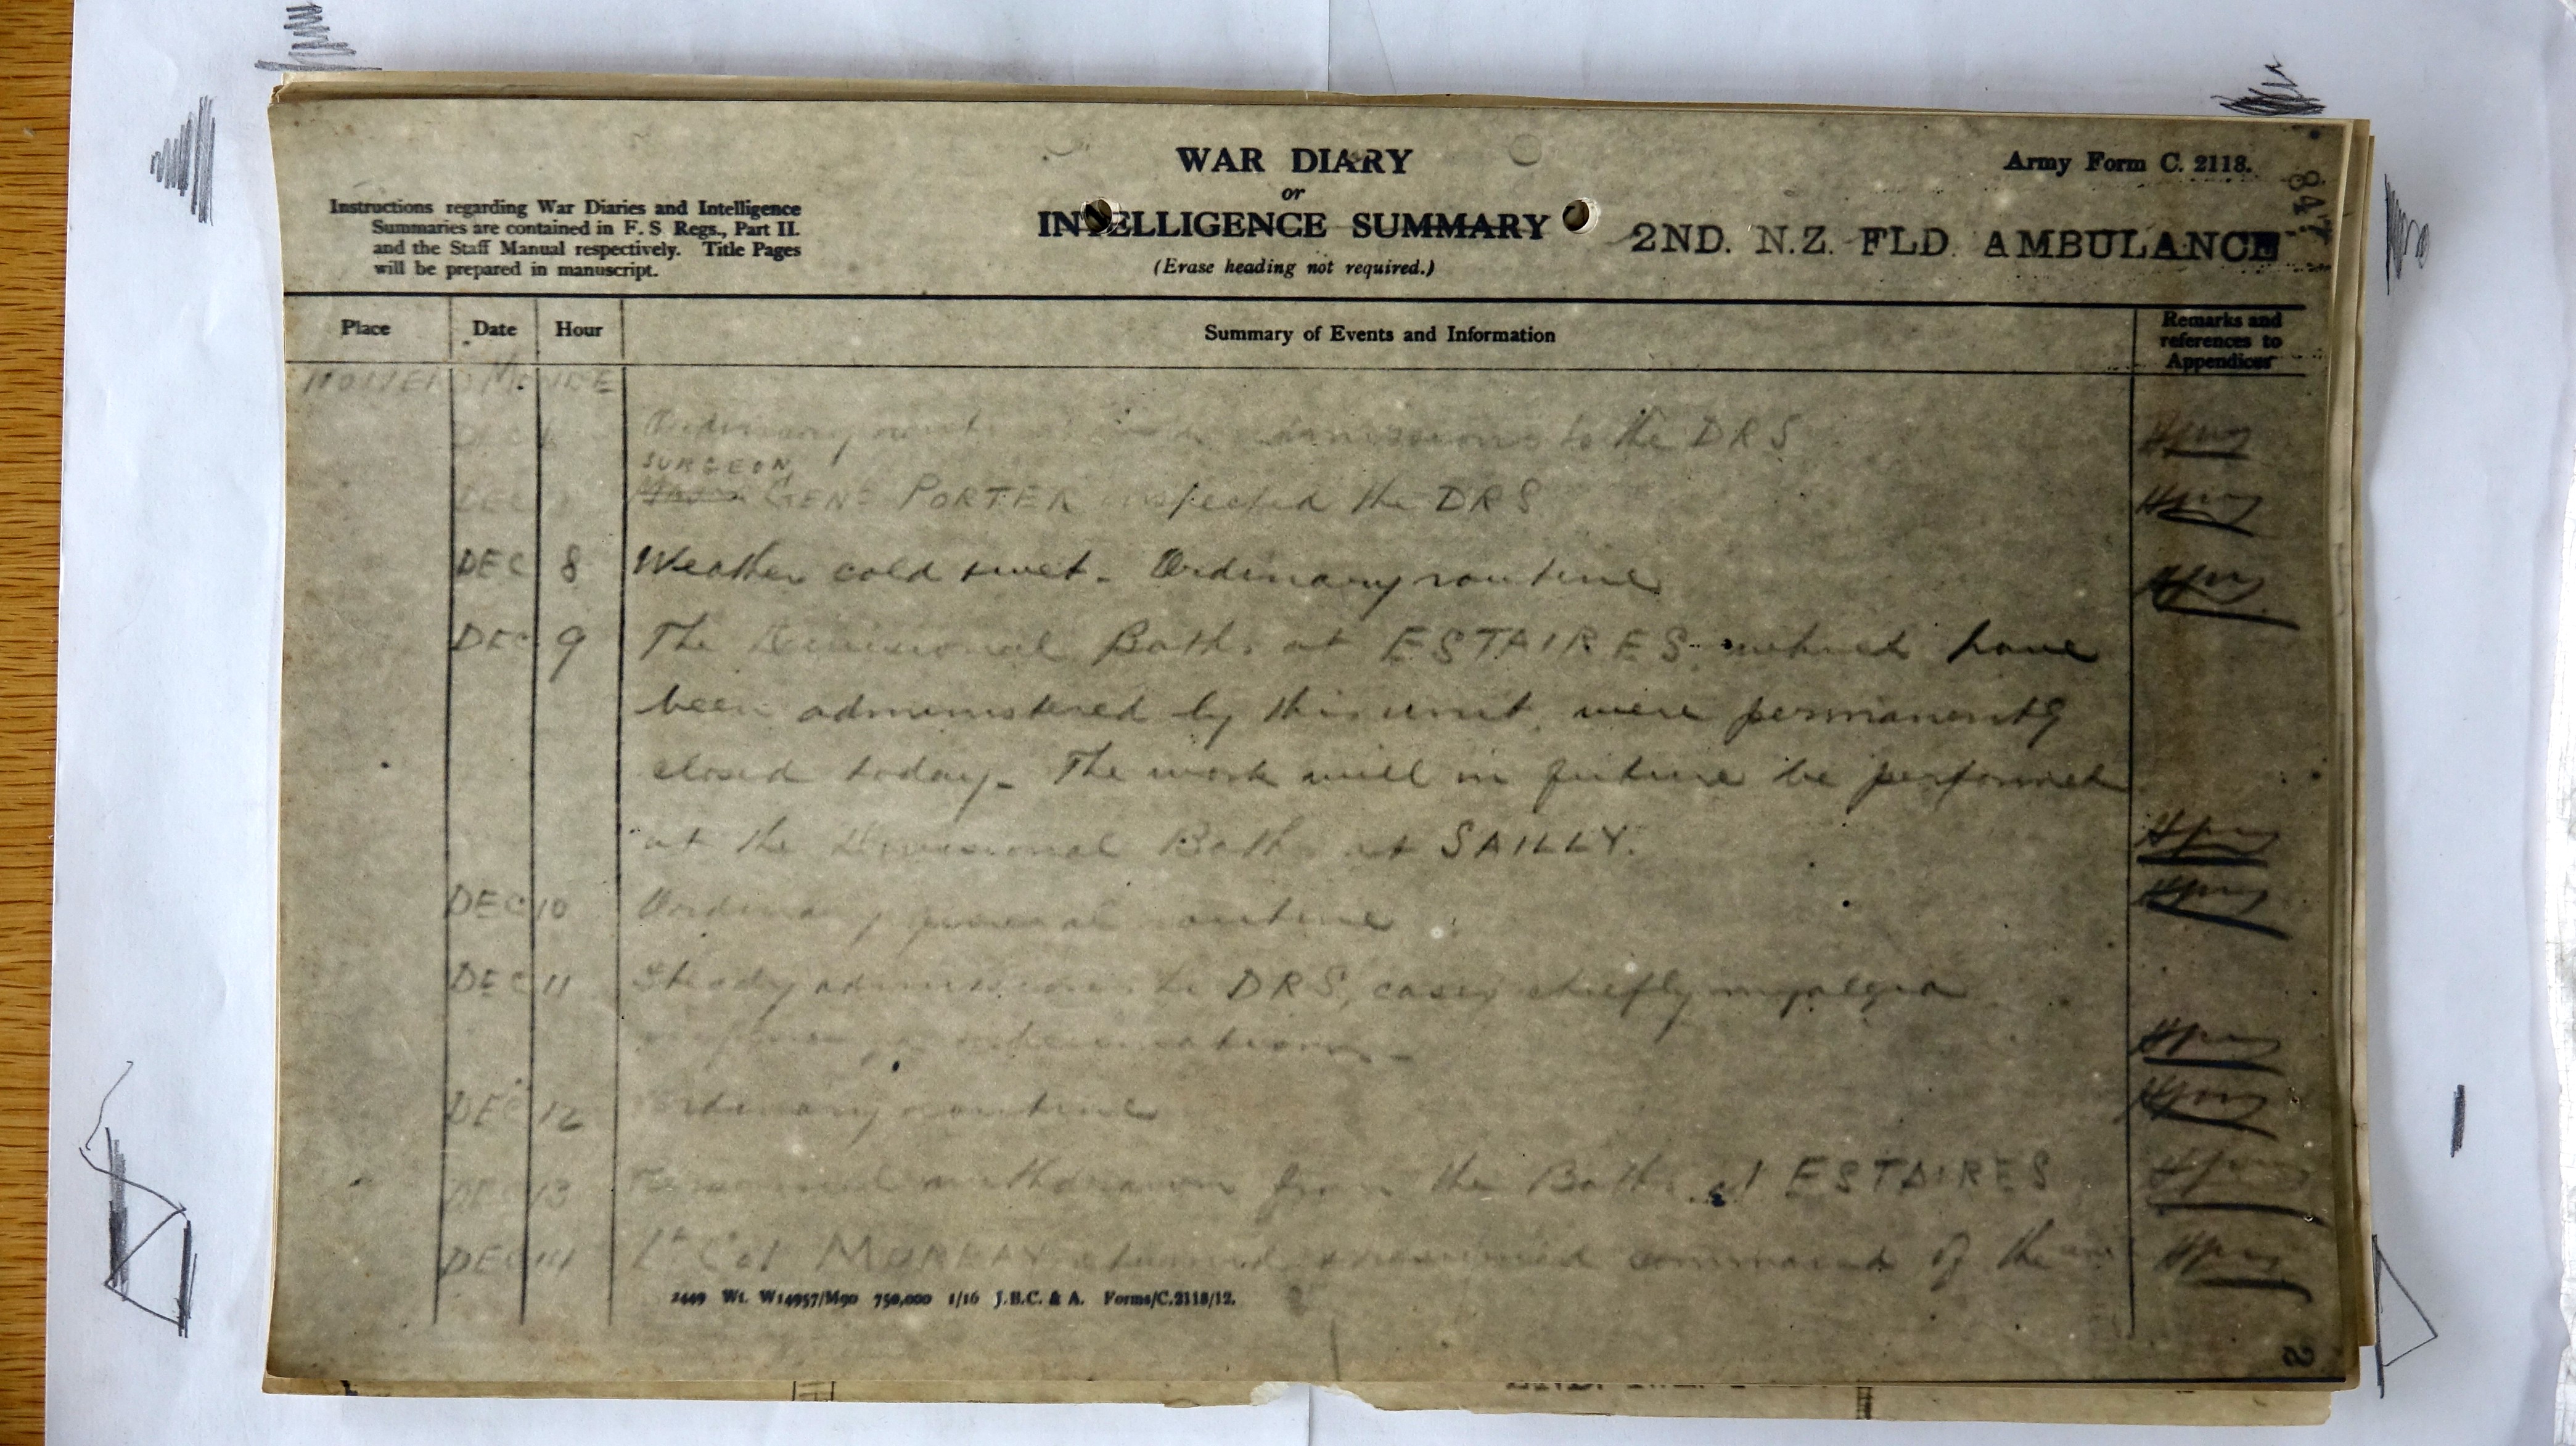 WAR DIARY
or
INTELLIGENCE SUMMARY
(Erase heading not required.)
Army Form C. 2118.
Instructions regarding War Diaries and Intelligence
Summaries are contained in F. S Regs., Part II.
and the Staff Manual respectively. Title Pages
will be prepared in manuscript.
2ND. N.Z. FLD. AMBULANCE
Place Date Hour Summary of Events and Information Remarks and
references to
Appendices
Ordinary admissions to the DRS
SURGEON
DEC GENL PORTER inspected the DRS
DEC 8 Weather cold & wet. Ordinary routine
DEC 9 The Divisional Baths at ESTAIRES which have
been administered by this unit were permanently
closed today. The work will in future be performed
at the Divisional Baths at SAILLY.
DEC 10 Ordinary general routine
DEC 11 Steady admissions to DRS, cases chiefly myalgia
DEC 12 Ordinary routine
DEC 13 Personnel withdrawn from the Baths at ESTAIRES
DEC 14 Lt Col MURRAY returned & resumed command of the
2449 Wt. W14957/M90 750,000 1/16 J.B.C. & A. Forms/C.2118/12.
2